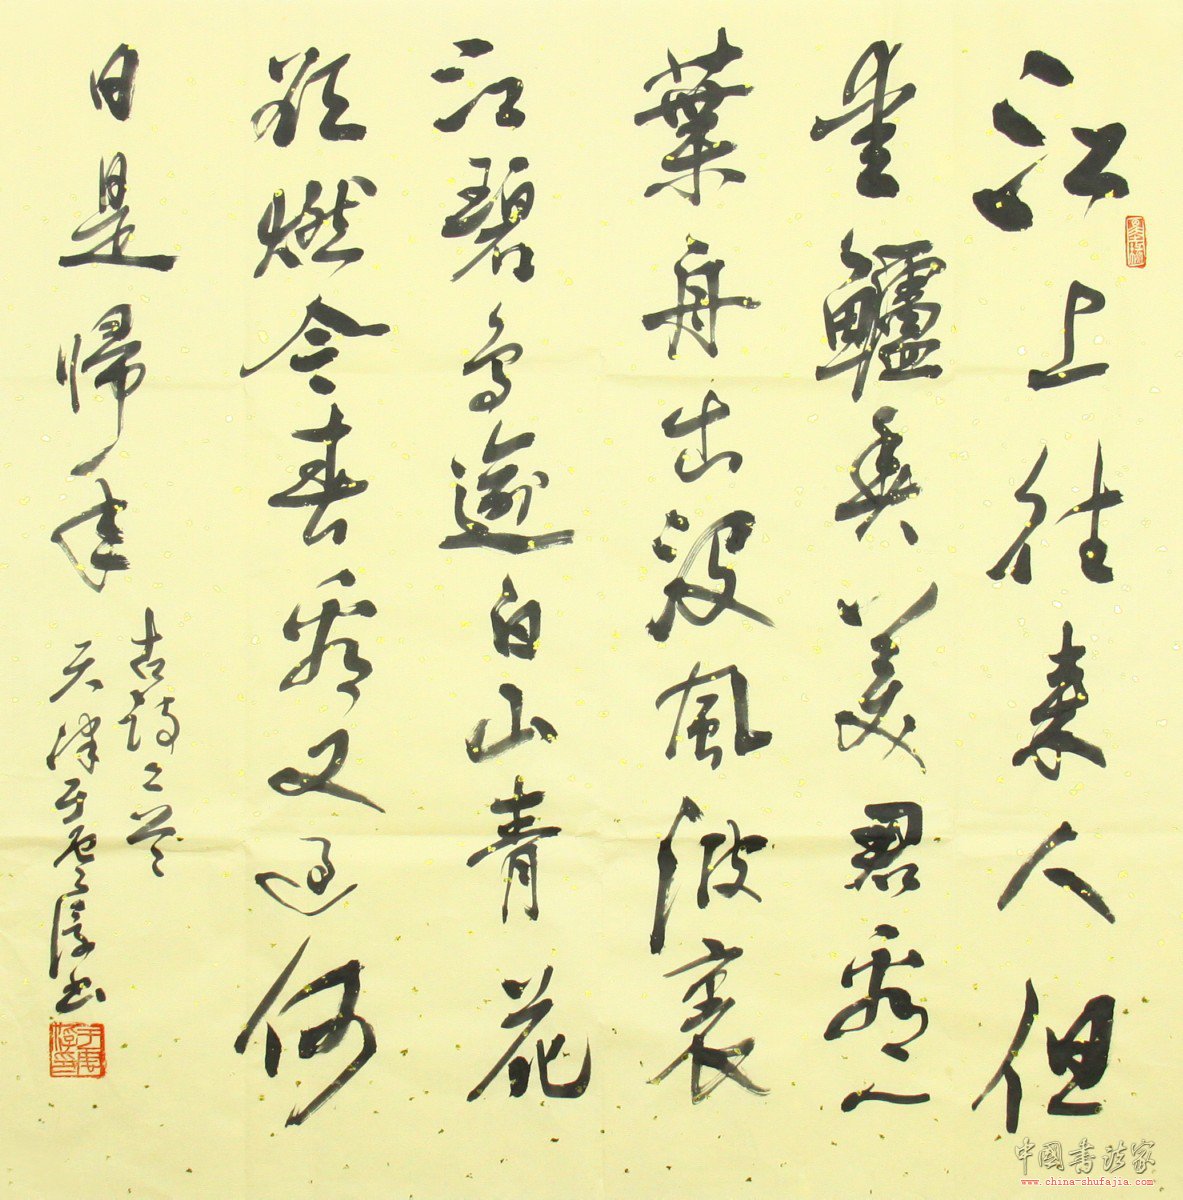 江上往来人但
愛鱸魚美君看一
葉舟出没風波裏
江碧鳥逾白山青花
欲燃今春看又過何
日是歸年
古詩二首
天津于雲淳书
于雲淳印
中國書法家
www.china-shufajia.com